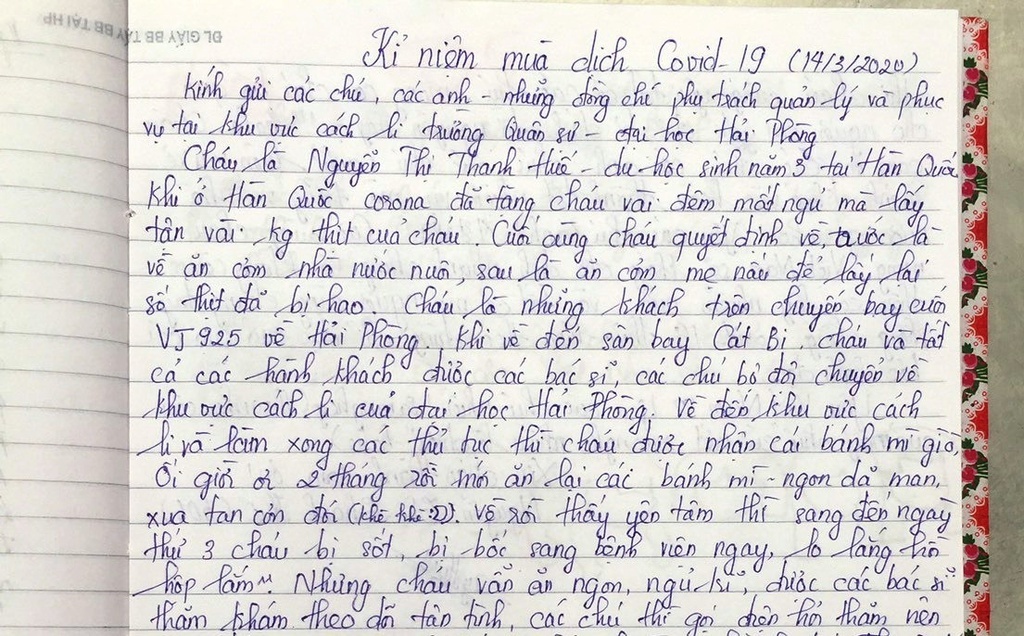 ĐL GIẤY BB TÂY BB TẠI HP
Kỉ niệm mùa dịch Covid-19 (14/3/2020)
Kính gửi các chú, các anh - những đồng chí phụ trách quản lý và phục
vụ tại khu vực cách li trường Quân sự - đại học Hải Phòng
Cháu là Nguyễn Thị Thanh Huế - du học sinh năm 3 tại Hàn Quốc
Khi ở Hàn Quốc corona đã tặng cháu vài đêm mất ngủ mà lấy
tận vài kg thịt của cháu. Cuối cùng cháu quyết định về, trước là
về ăn cơm nhà nước nuôi, sau là ăn cơm mẹ nấu để lấy lại
số thịt đã bị hao. Cháu là những khách trên chuyến bay cuối
VJ925 về Hải Phòng. Khi về đến sân bay Cát Bi, cháu và tất
cả các hành khách được các bác sĩ, các chú bộ đội chuyển về
khu vực cách li của đại học Hải Phòng. Về đến khu vực cách
li và làm xong các thủ tục thì cháu được nhận cái bánh mì giò,
Ôi giời ơi 2 tháng rồi mới ăn lại các bánh mì - ngon dã man,
xua tan cơn đói (khè khè :D). Về rồi thấy yên tâm thì sang đến ngày
thứ 3 cháu bị sốt, bị bốc sang bệnh viện ngay, lo lắng hồi
hộp lắm. Nhưng cháu vẫn ăn ngon, ngủ kĩ, được các bác sĩ
thăm khám theo dõi tận tình, các chú thì gọi điện hỏi thăm nên